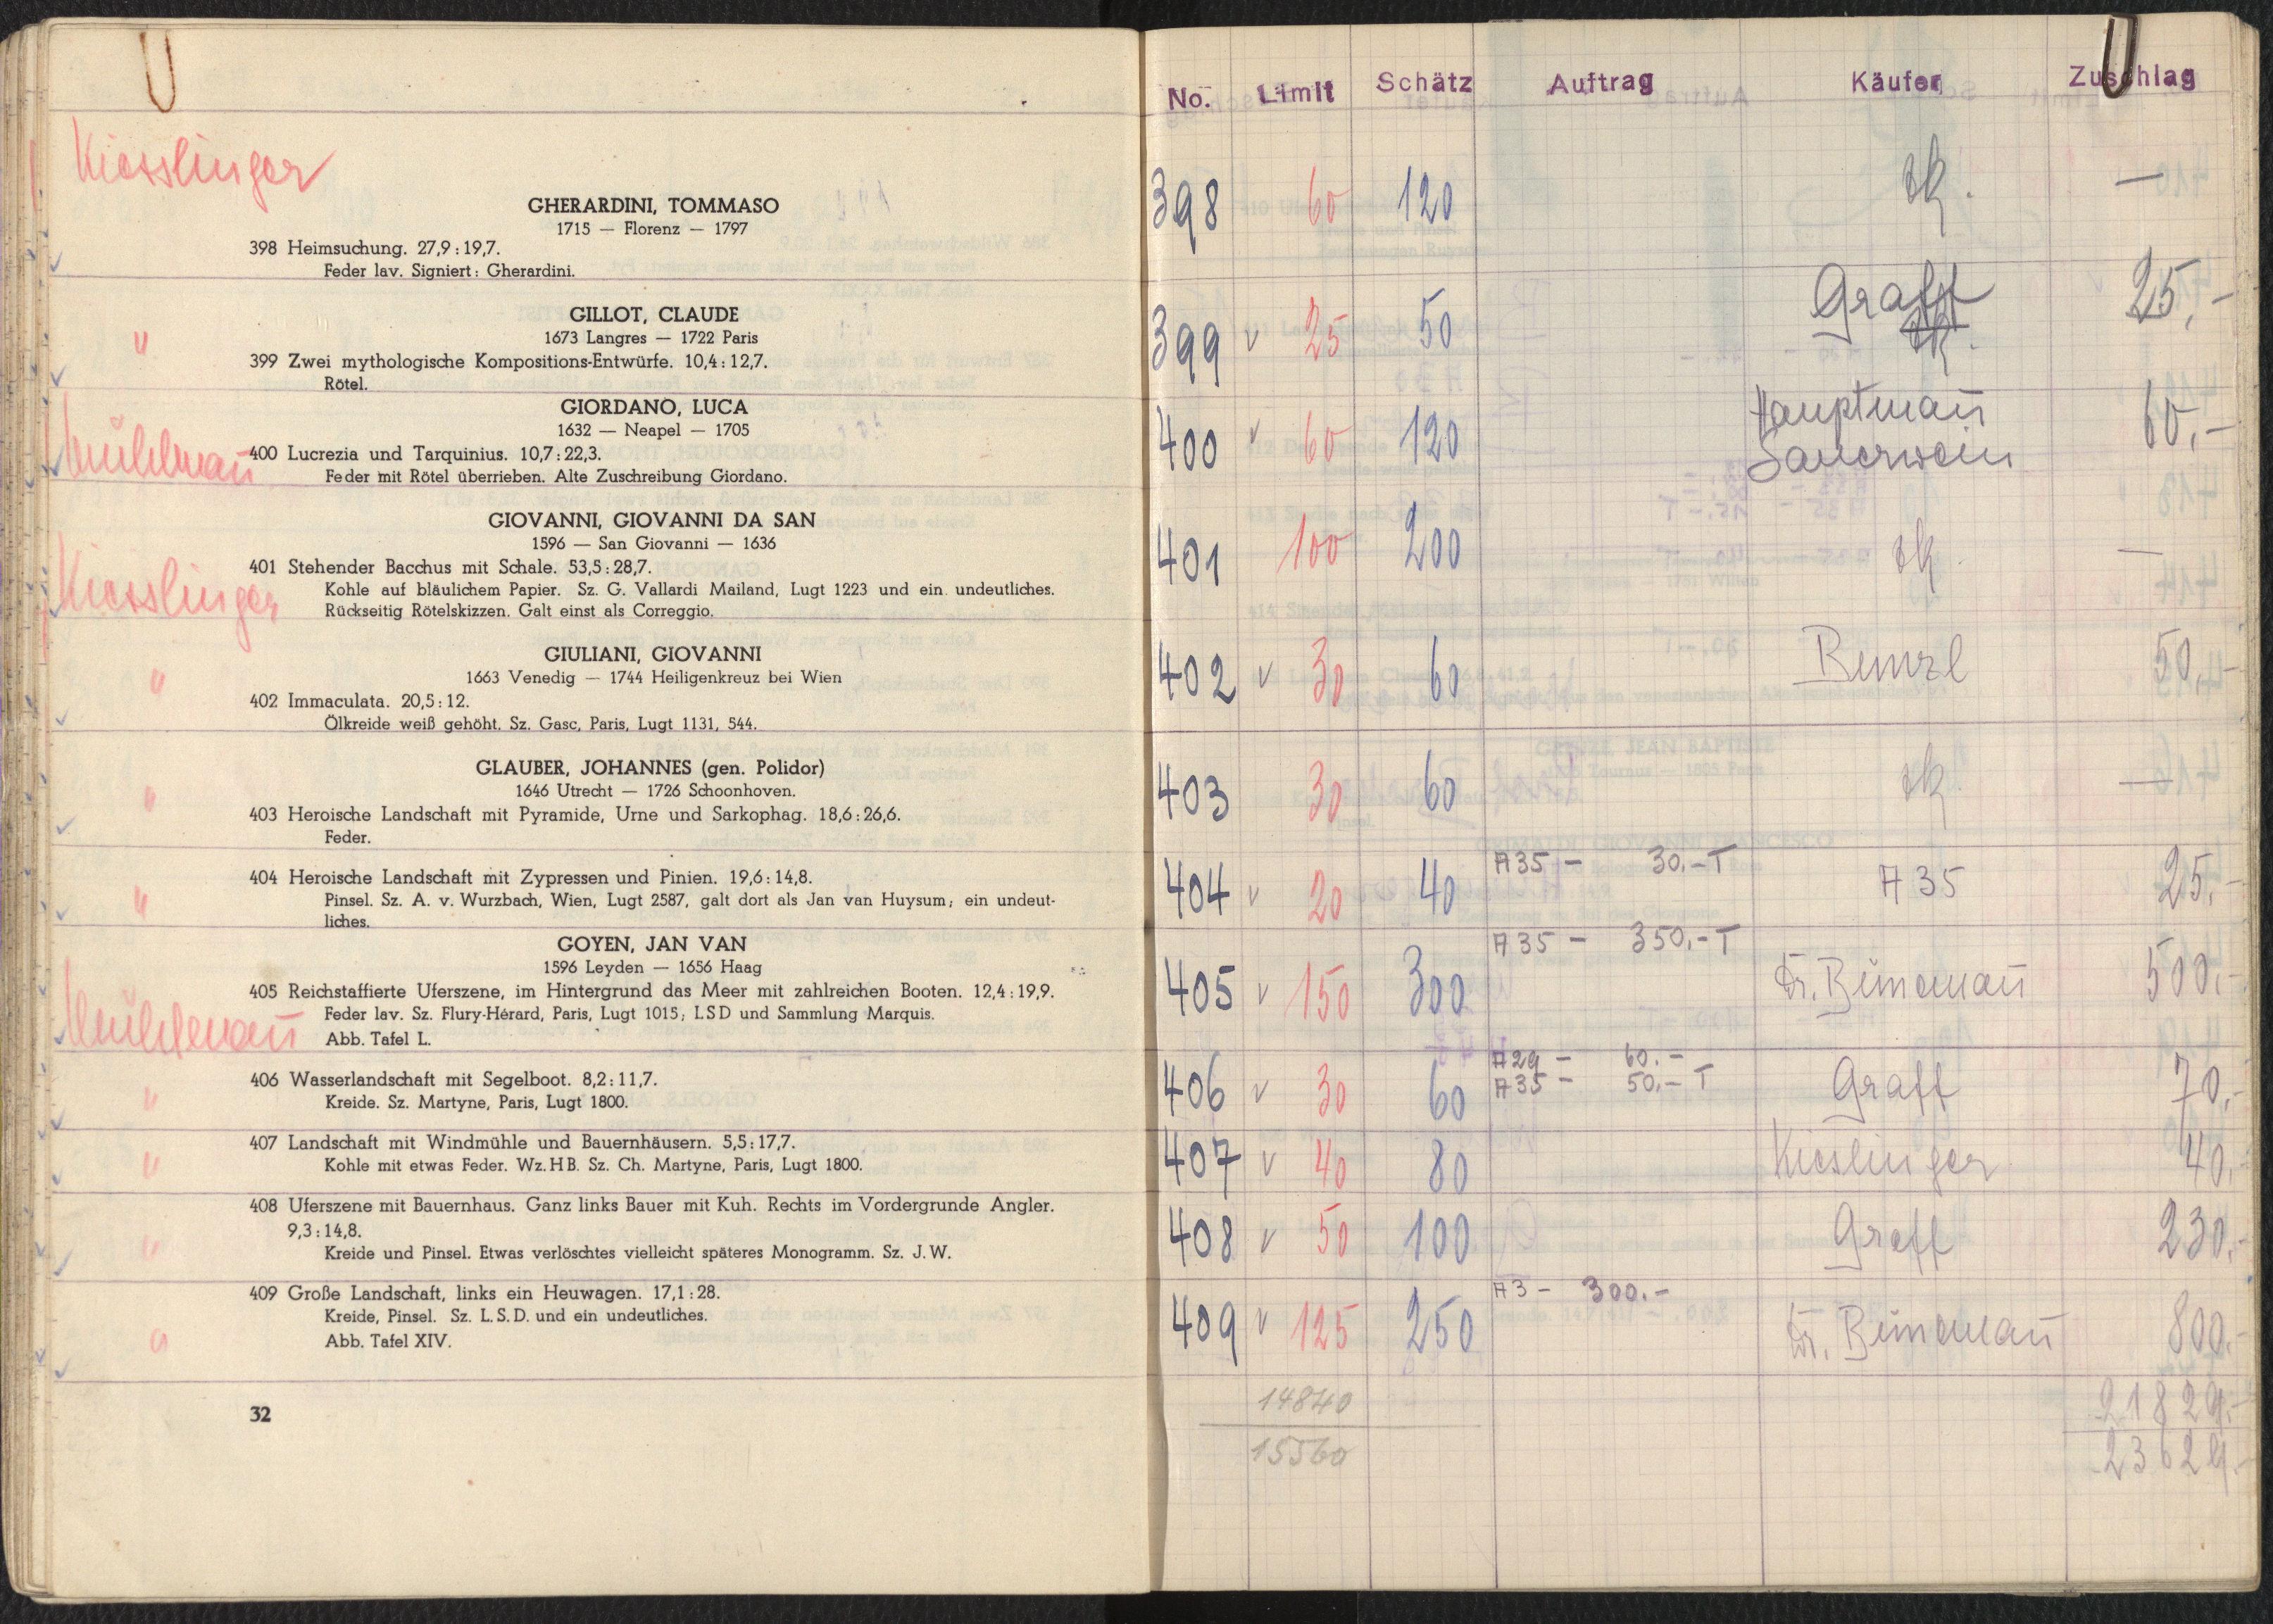 Kiesslinger
GHERARDINI, TOMMASO
1715 — Florenz — 1797
398 Heimsuchung. 27,9 : 19,7.
Feder lav. Signiert: Gherardini.
GILLOT, CLAUDE
1673 Langres — 1722 Paris
"
399 Zwei mythologische Kompositions-Entwürfe. 10,4 : 12,7.
Rötel.
GIORDANO, LUCA
1632 — Neapel — 1705
Mühlmañ
400 Lucrezia und Tarquinius. 10,7 : 22,3.
Feder mit Rötel überrieben. Alte Zuschreibung Giordano.
GIOVANNI, GIOVANNI DA SAN
1596 — San Giovanni — 1636
Kiesslinger
401 Stehender Bacchus mit Schale. 53,5 : 28,7.
Kohle auf bläulichem Papier. Sz. G. Vallardi Mailand, Lugt 1223 und ein undeutliches.
Rückseitig Rötelskizzen. Galt einst als Correggio.
GIULIANI, GIOVANNI
1663 Venedig — 1744 Heiligenkreuz bei Wien
"
402 Immaculata. 20,5 : 12.
Ölkreide weiß gehöht. Sz. Gasc, Paris, Lugt 1131, 544.
GLAUBER, JOHANNES (gen. Polidor)
1646 Utrecht — 1726 Schoonhoven.
"
403 Heroische Landschaft mit Pyramide, Urne und Sarkophag. 18,6 : 26,6.
Feder.
404 Heroische Landschaft mit Zypressen und Pinien. 19,6 : 14,8.
"
Pinsel. Sz. A. v. Wurzbach, Wien, Lugt 2587, galt dort als Jan van Huysum; ein undeut-
liches.
GOYEN, JAN VAN
1596 Leyden — 1656 Haag
405 Reichstaffierte Uferszene, im Hintergrund das Meer mit zahlreichen Booten. 12,4 : 19,9.
Feder lav. Sz. Flury-Hérard, Paris, Lugt 1015; LSD und Sammlung Marquis.
Mühlmañ
Abb. Tafel L.
406 Wasserlandschaft mit Segelboot. 8,2 : 11,7.
"
Kreide. Sz. Martyne, Paris, Lugt 1800.
407 Landschaft mit Windmühle und Bauernhäusern. 5,5 : 17,7.
"
Kohle mit etwas Feder. Wz. HB. Sz. Ch. Martyne, Paris, Lugt 1800.
408 Uferszene mit Bauernhaus. Ganz links Bauer mit Kuh. Rechts im Vordergrunde Angler.
9,3 : 14,8.
"
Kreide und Pinsel. Etwas verlöschtes vielleicht späteres Monogramm. Sz. J. W.
409 Große Landschaft, links ein Heuwagen. 17,1 : 28.
Kreide, Pinsel. Sz. L. S. D. und ein undeutliches.
"
Abb. Tafel XIV.
32
No. Limit Schätz Auftrag Käufer Zuschlag
398 60 120 —
399 v 25 50 Graff 25,-
400 v 60 120 Hauptmañ
Sauerwein 60,-
401 100 200 —
402 v 30 60 50,-
403 30 60 —
404 v 20 40 A35 - 30.-T A 35 25.-
405 v 150 300 A35 - 350.-T Dr. Bünemañ 500.-
406 v 30 60 A29 - 60.-
A35 - 50.- T Graff 70.-
407 v 40 80 Kieslinger 40.
408 v 50 100 Graff 230.-
409 v 125 250 A3 - 300.- Dr. Bünemañ 800.-
14840 21829.-
15560 23629.-